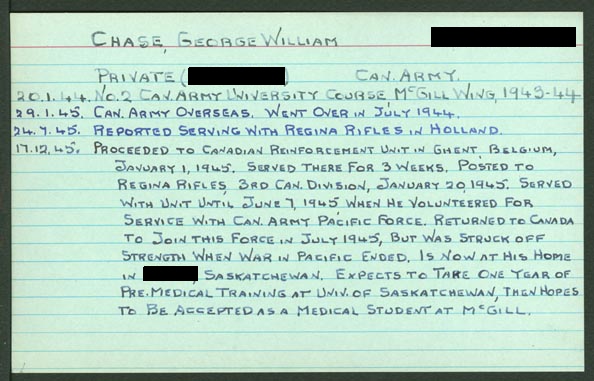 CHASE, GEORGE WILLIAM
PRIVATE ( ) CAN. ARMY.
20.1.44. No. 2 CAN. ARMY UNIVERSITY COURSE, McGILL WING, 1943-44
29.1.45. CAN. ARMY OVERSEAS. WENT OVER IN JULY 1944.
24.7.45. REPORTED SERVING WITH REGINA RIFLES IN HOLLAND.
17.12.45. PROCEEDED TO CANADIAN REINFORCEMENT UNIT IN GHENT, BELGIUM,
JANUARY 1, 1945. SERVED THERE FOR 3 WEEKS. POSTED TO
REGINA RIFLES, 3RD CAN. DIVISION, JANUARY 20, 1945. SERVED
WITH UNIT UNTIL JUNE 7, 1945 WHEN HE VOLUNTEERED FOR
SERVICE WITH CAN. ARMY PACIFIC FORCE. RETURNED TO CANADA
TO JOIN THIS FORCE IN JULY 1945, BUT WAS STRUCK OFF
STRENGTH WHEN WAR IN PACIFIC ENDED. IS NOW AT HIS HOME
IN , SASKATCHEWAN. EXPECTS TO TAKE ONE YEAR OF
PRE-MEDICAL TRAINING AT UNIV. OF SASKATCHEWAN, THEN HOPES
TO BE ACCEPTED AS A MEDICAL STUDENT AT McGILL.